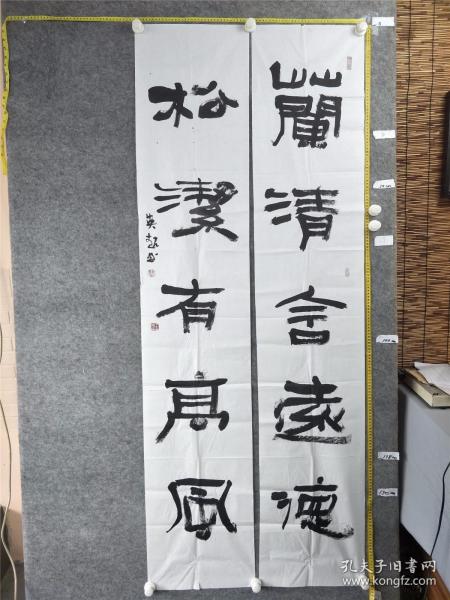 蘭清含遠德
松潔有高風
孔夫子旧书网
www.kongfz.com